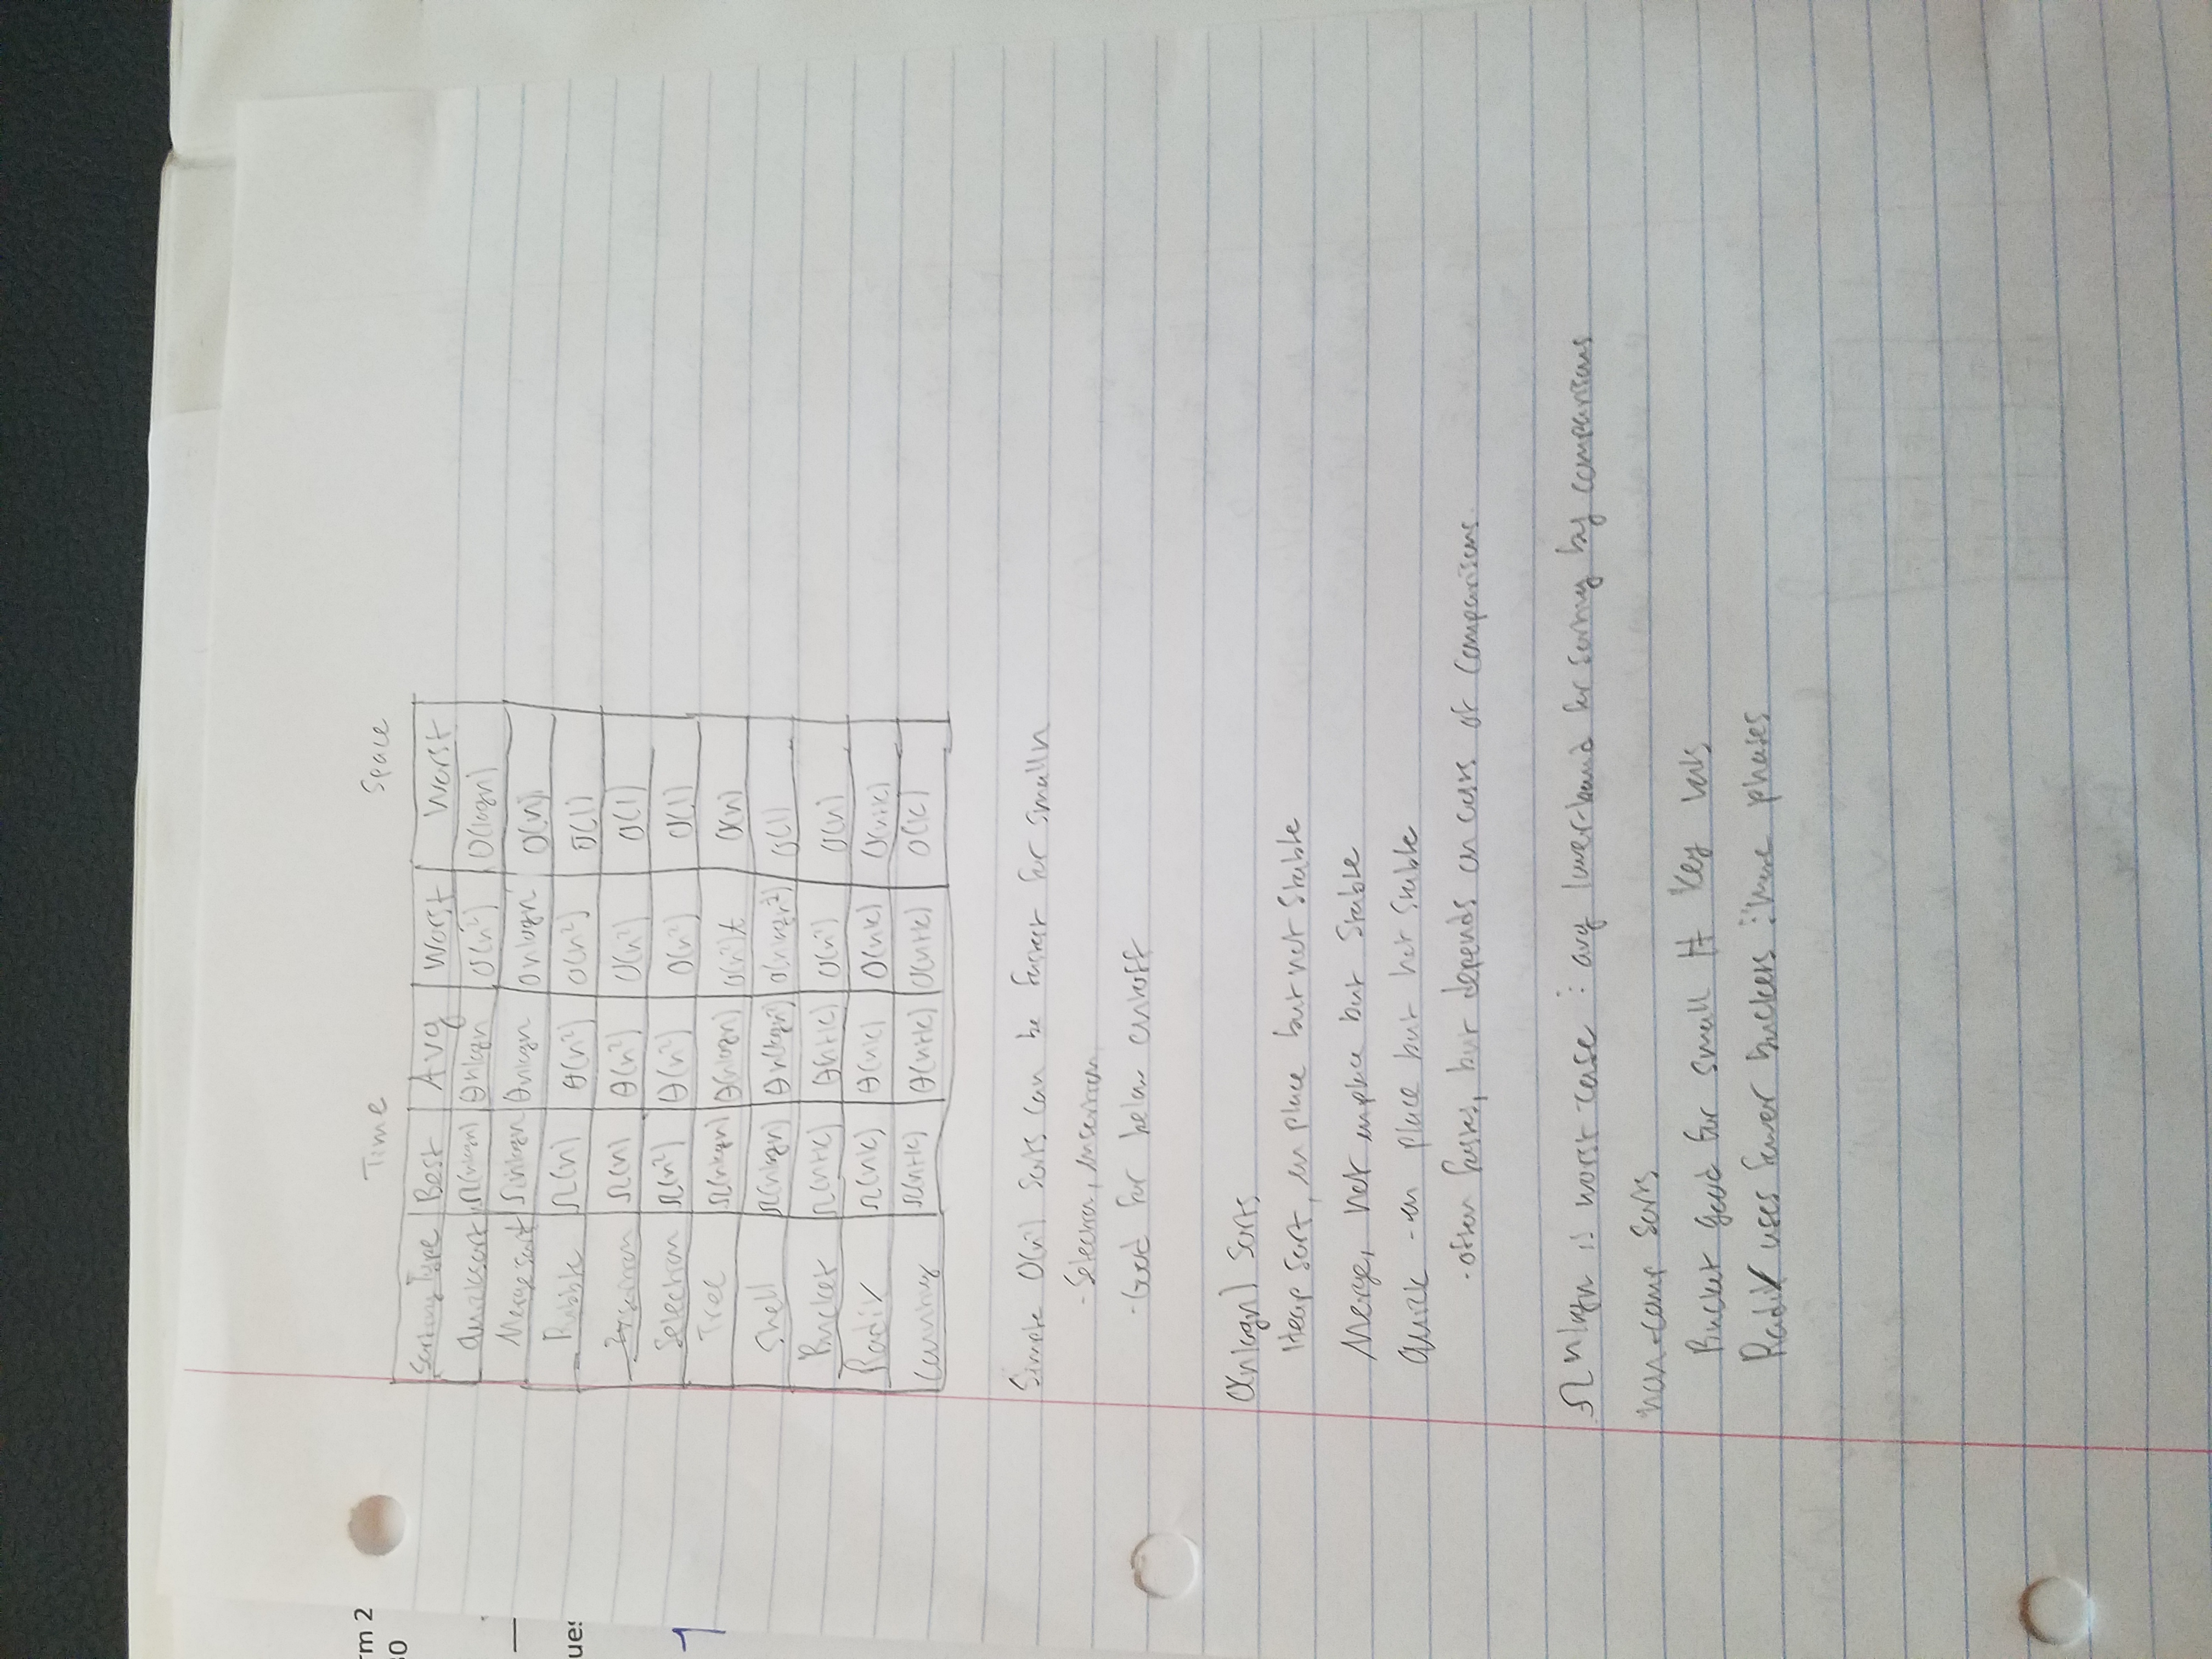 rm 2
30
ues
1
Time Space
Sorting Type Best Avg Worst Worst
Quicksort Ω(nlogn) θnlogn O(n²) O(logn)
Merge sort Ωnlogn θnlogn Onlogn O(n)
Bubble Ω(n) θ(n²) O(n²) O(1)
Insertion Ω(n) θ(n²) O(n²) O(1)
Selection Ω(n²) θ(n²) O(n²) O(1)
Tree Ω(nlogn) θ(nlogn) O(n²) O(n)
Shell Ω(nlogn) θn(logn²) O(nlogn²) O(1)
Bucket Ω(n+k) θ(n+k) O(n²) O(n)
Radix Ω(nk) θ(nk) O(nk) O(n+k)
Counting Ω(n+k) θ(n+k) O(n+k) O(k)
Simple O(n²) sorts can be fastest for small n
- Selection, insertion
- Good for below cutoff
O(nlogn) sorts
Heap sort, in place but not stable
Merge, not in place but stable
Quick - in place but not stable
- often fastest, but depends on costs of comparisons.
Ω nlogn is worst-case : avg lower-bound for sorting by comparisons
non-comp sorts
Bucket good for small # key vals
Radix uses fewer buckets : more phases